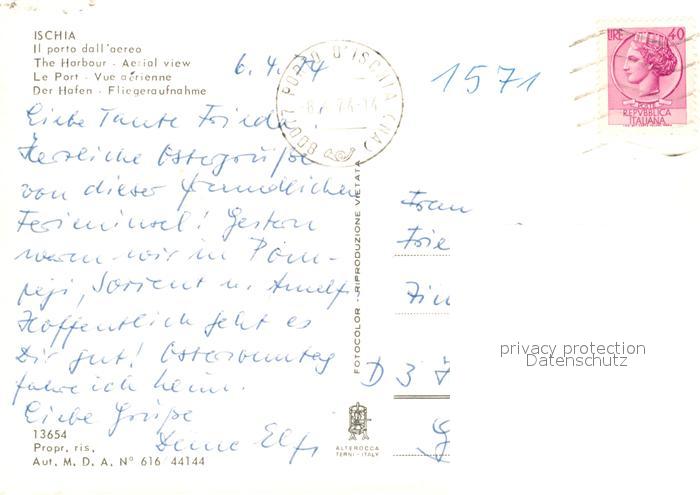 ISCHIA
Il porto dall'aereo
The Harbour - Aerial view
Le Port - Vue aérienne
Der Hafen - Fliegeraufnahme
6. 4. 74
80077 PORTO D'ISCHIA (NA)
1571
LIRE 40
POSTE
REPVBBLICA
ITALIANA
Liebe Tante Frieda!
Herzliche Ostergrüße
von dieser freundlichen
Ferieninsel! Gestern
waren wir in Pom-
peji, Sorient u. Amalfi
Hoffentlich geht es
Dir gut! Ostersonntag
fahre ich heim.
Liebe Grüße
Deine Elfi
FOTOCOLOR - RIPRODUZIONE VIETATA
Frau
Frie
Zim
D 3 7
G
privacy protection
Datenschutz
13654
Propr. ris.
Aut. M. D. A. N° 616 44144
ALTEROCCA
TERNI - ITALY